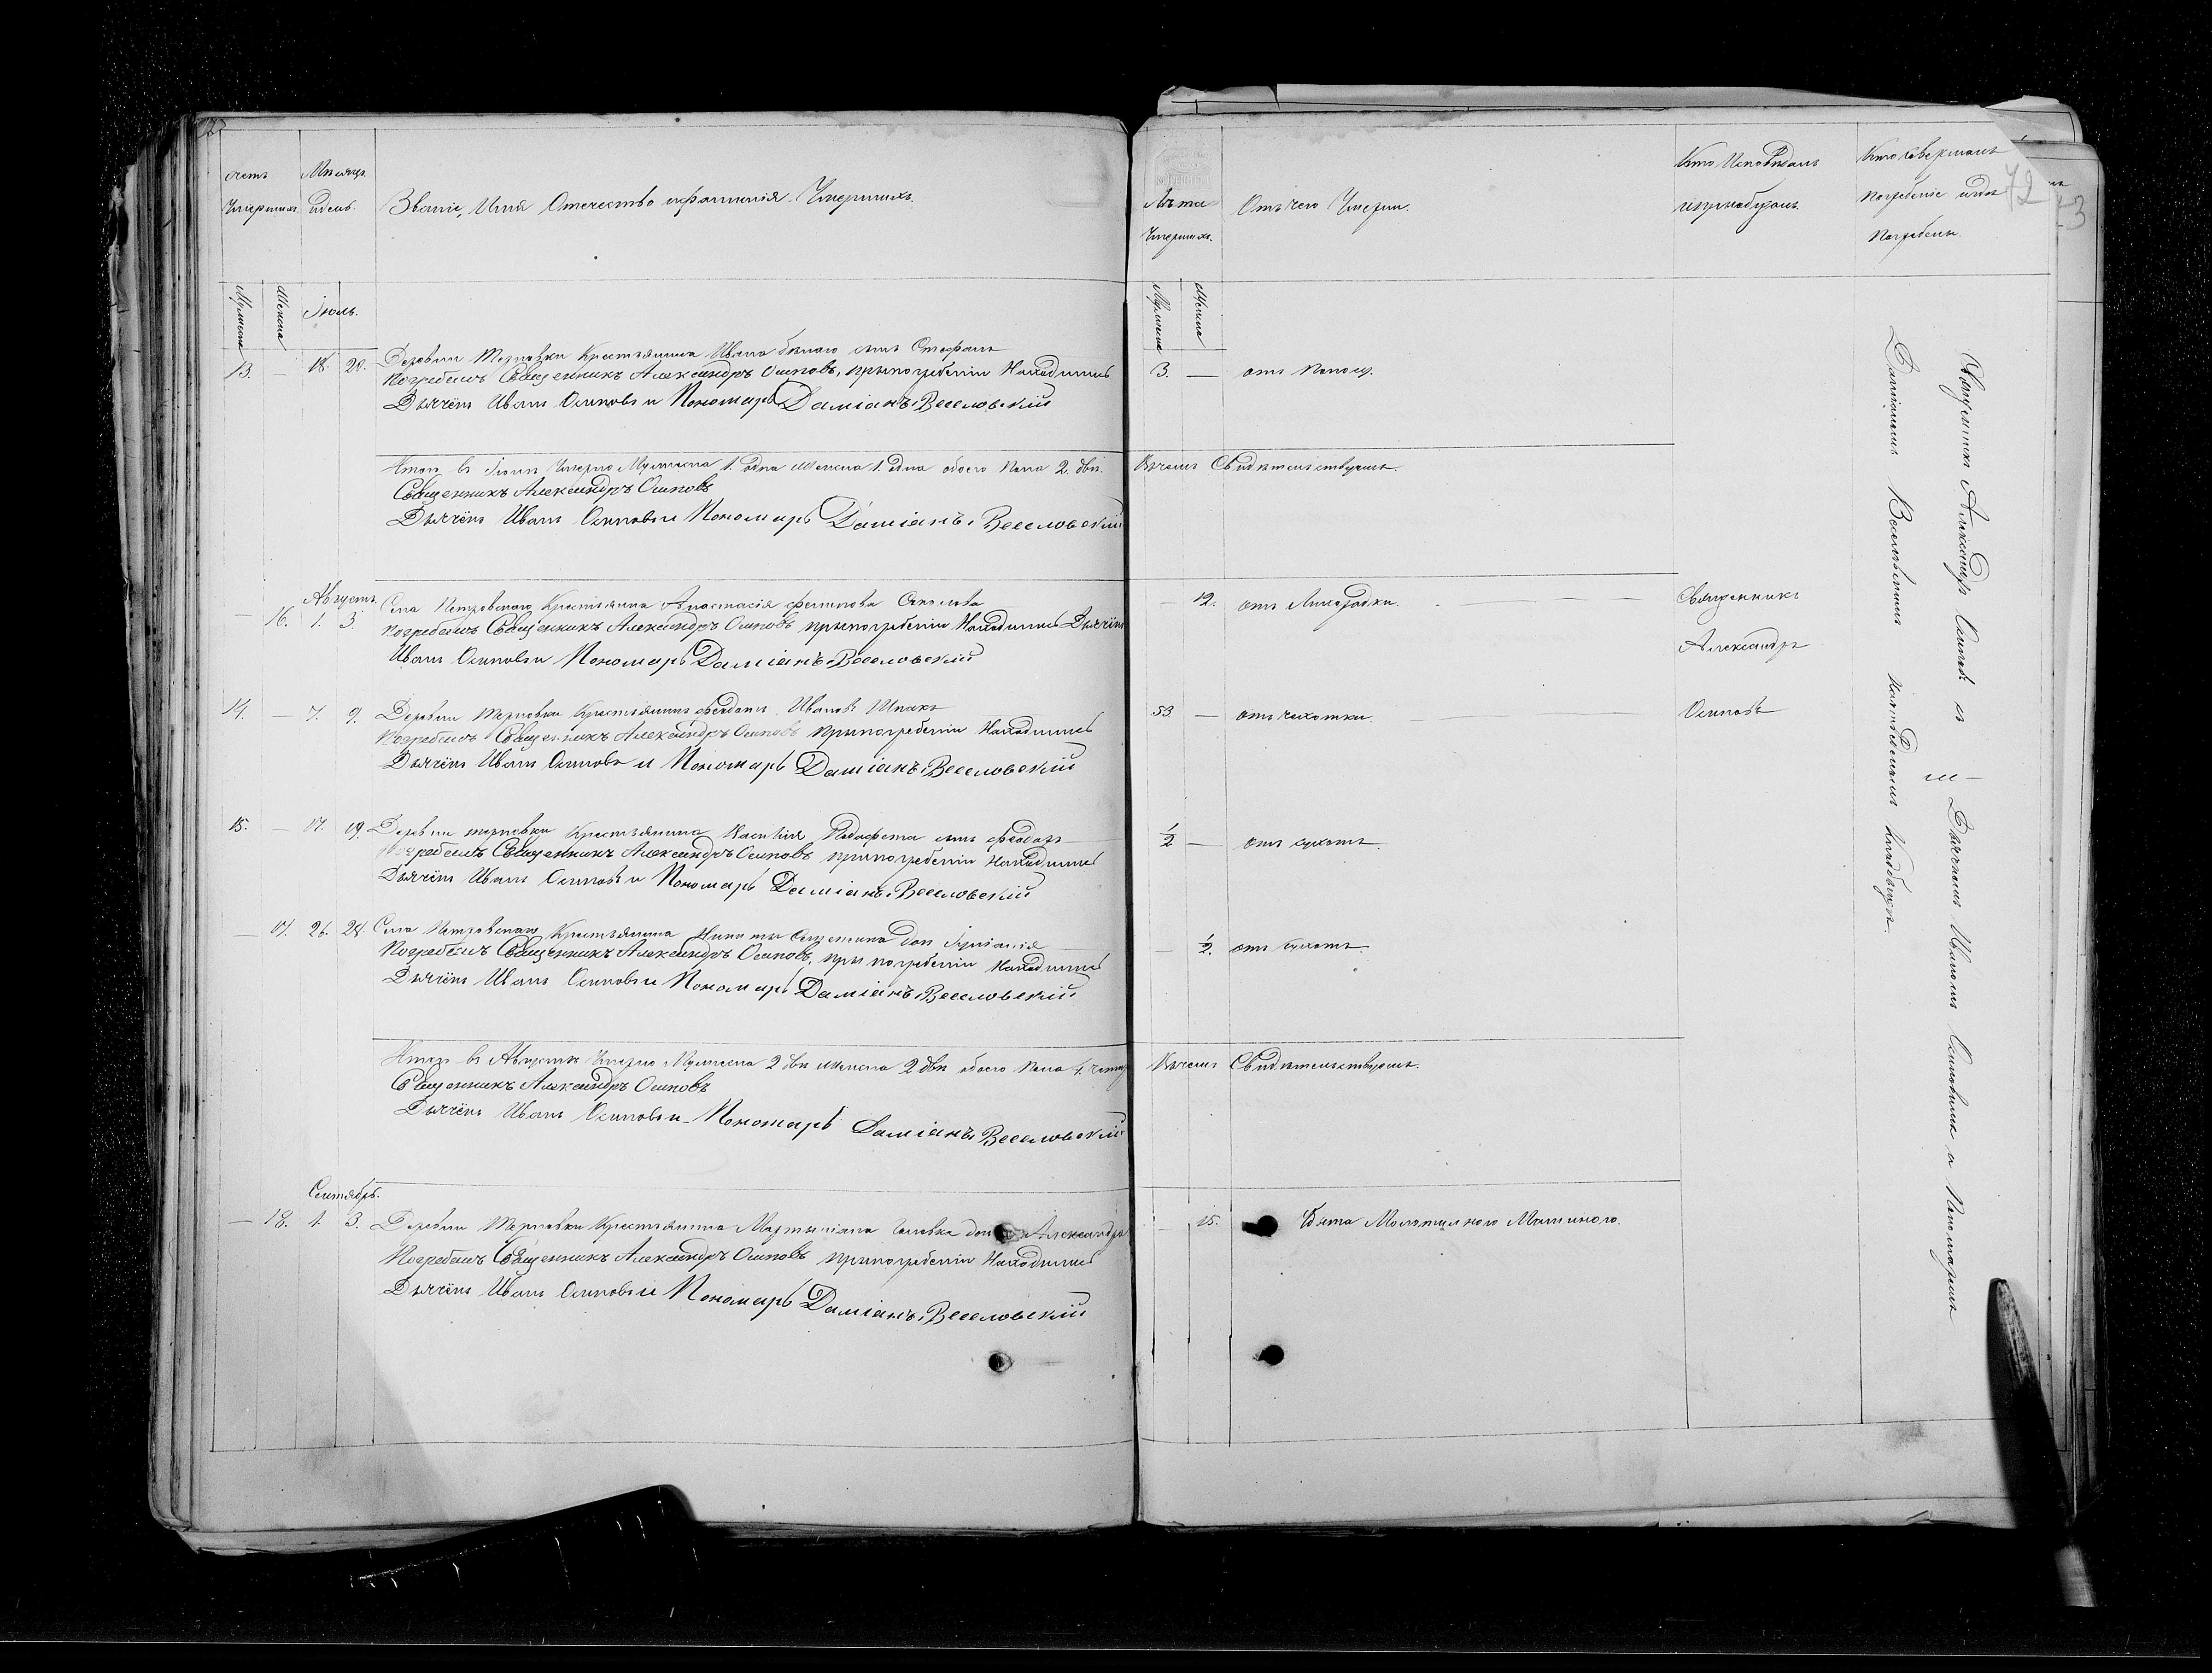 Счетъ Умершихъ.
Мѣсяцъ и день.
Званіе, Имя Отечество и фамилія Умершихъ.
Мужеска
Женска
Іюль.
13. — 18. 20. Деревни Терновки Крестьянина Ивана Бѣлаго сынъ Стефанъ
Погребалъ Священникъ Александръ Осиповъ, при погребеніи Находились
Дьячёкъ Иванъ Осиповъ и Пономарь Даміанъ Веселовскій
Итого въ Іюлѣ Умерло Мужеска 1. одна женска 1. одна обоего пола 2. двѣ.
Священникъ Александръ Осиповъ
Дьячёкъ Иванъ Осиповъ и Пономарь Даміанъ Веселовскій
Августъ.
— 16. 1. 3. Села Петровскаго Крестьянина Анастасія
Погребалъ Священникъ Александръ Осиповъ при погребеніи Находились Дьячёкъ
Иванъ Осиповъ и Пономарь Даміанъ Веселовскій
14. — 7. 9. Деревни Терновки Крестьянинъ Ивановъ Шпакъ
Погребалъ Священникъ Александръ Осиповъ при погребеніи Находились
Дьячёкъ Иванъ Осиповъ и Пономарь Даміанъ Веселовскій
15. — 17. 19. Деревни терновки Крестьянина Василія сынъ Феодоръ
Погребалъ Священникъ Александръ Осиповъ при погребеніи Находились
Дьячёкъ Иванъ Осиповъ и Пономарь Даміанъ Веселовскій
— 17. 26. 28. Села Петровскаго Крестьянина Никиты доч
Погребалъ Священникъ Александръ Осиповъ, при погребеніи Находились
Дьячёкъ Иванъ Осиповъ и Пономарь Даміанъ Веселовскій
Итого въ Августѣ Умерло Мужеска 2 двѣ женска 2 двѣ обоего пола 4.
Священникъ Александръ Осиповъ
Дьячёкъ Иванъ Осиповъ и Пономарь Даміанъ Веселовскій
Сентябрь.
— 18. 1. 3. Деревни Терновки Крестьянина доч Александра
Погребалъ Священникъ Александръ Осиповъ при погребеніи Находились
Дьячёкъ Иванъ Осиповъ и Пономарь Даміанъ Веселовскій
Лѣта Умершихъ.
Отъ чего Умерли.
Кто Исповѣдалъ и пріобщалъ.
Кто Совершалъ Погребеніе и гдѣ Погребены.
72
Мужеска
Женска
3. — отъ Поносу.
Въ чемъ Свидѣтельствуемъ.
— 12. отъ Лихорадки. — Священникъ
Александръ
53. — отъ чахотки. — Осиповъ
1/2 — отъ сухотъ.
— 1/2. отъ сухотъ.
Въ чемъ Свидѣтельствуемъ.
— 15. Убита Молотильною Машиною.
Священникъ Александръ Осиповъ съ Дьячкомъ Иваномъ Осиповымъ и Пономаремъ
Даміаномъ Веселовскимъ на кладбищѣ.